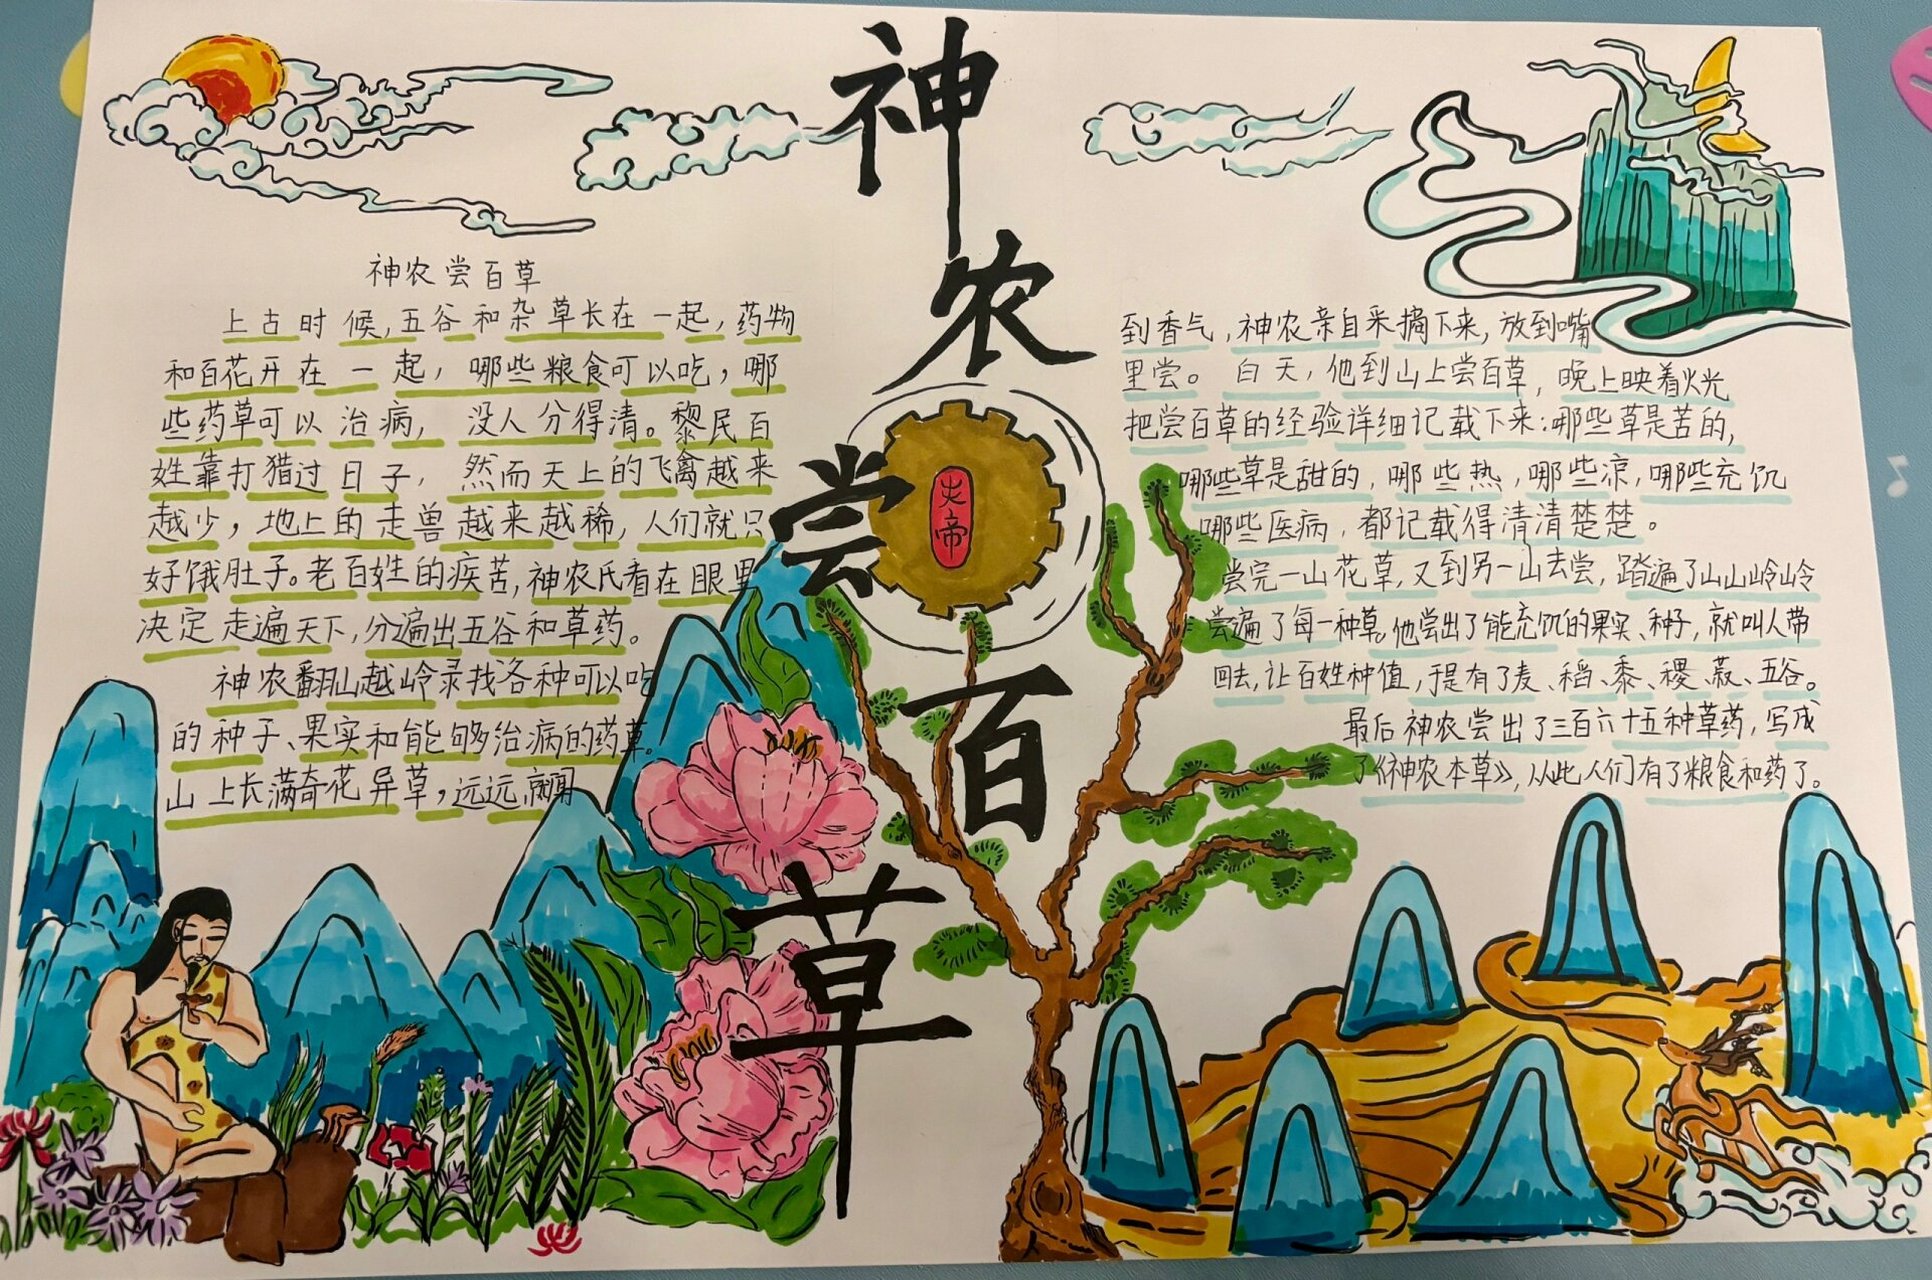 神农尝百草
炎帝
神农尝百草
上古时候,五谷和杂草长在一起,药物
和百花开在一起,哪些粮食可以吃,哪
些药草可以治病,没人分得清。黎民百
姓靠打猎过日子,然而天上的飞禽越来
越少,地上的走兽越来越稀,人们就只
好饿肚子。老百姓的疾苦,神农氏看在眼里
决定走遍天下,分遍出五谷和草药。
神农翻山越岭录找各种可以吃
的种子、果实和能够治病的药草。
山上长满奇花异草,远远就闻
到香气,神农亲自采摘下来,放到嘴
里尝。白天,他到山上尝百草,晚上映着火光
把尝百草的经验详细记载下来:哪些草是苦的,
哪些草是甜的,哪些热,哪些凉,哪些充饥
哪些医病,都记载得清清楚楚。
尝完一山花草,又到另一山去尝,踏遍了山山岭岭
尝遍了每一种草。他尝出了能充饥的果实、种子,就叫人带
回去,让百姓种值,于是有了麦、稻、黍、稷、菽、五谷。
最后神农尝出了三百六十五种草药,写成
了《神农本草》,从此人们有了粮食和药了。